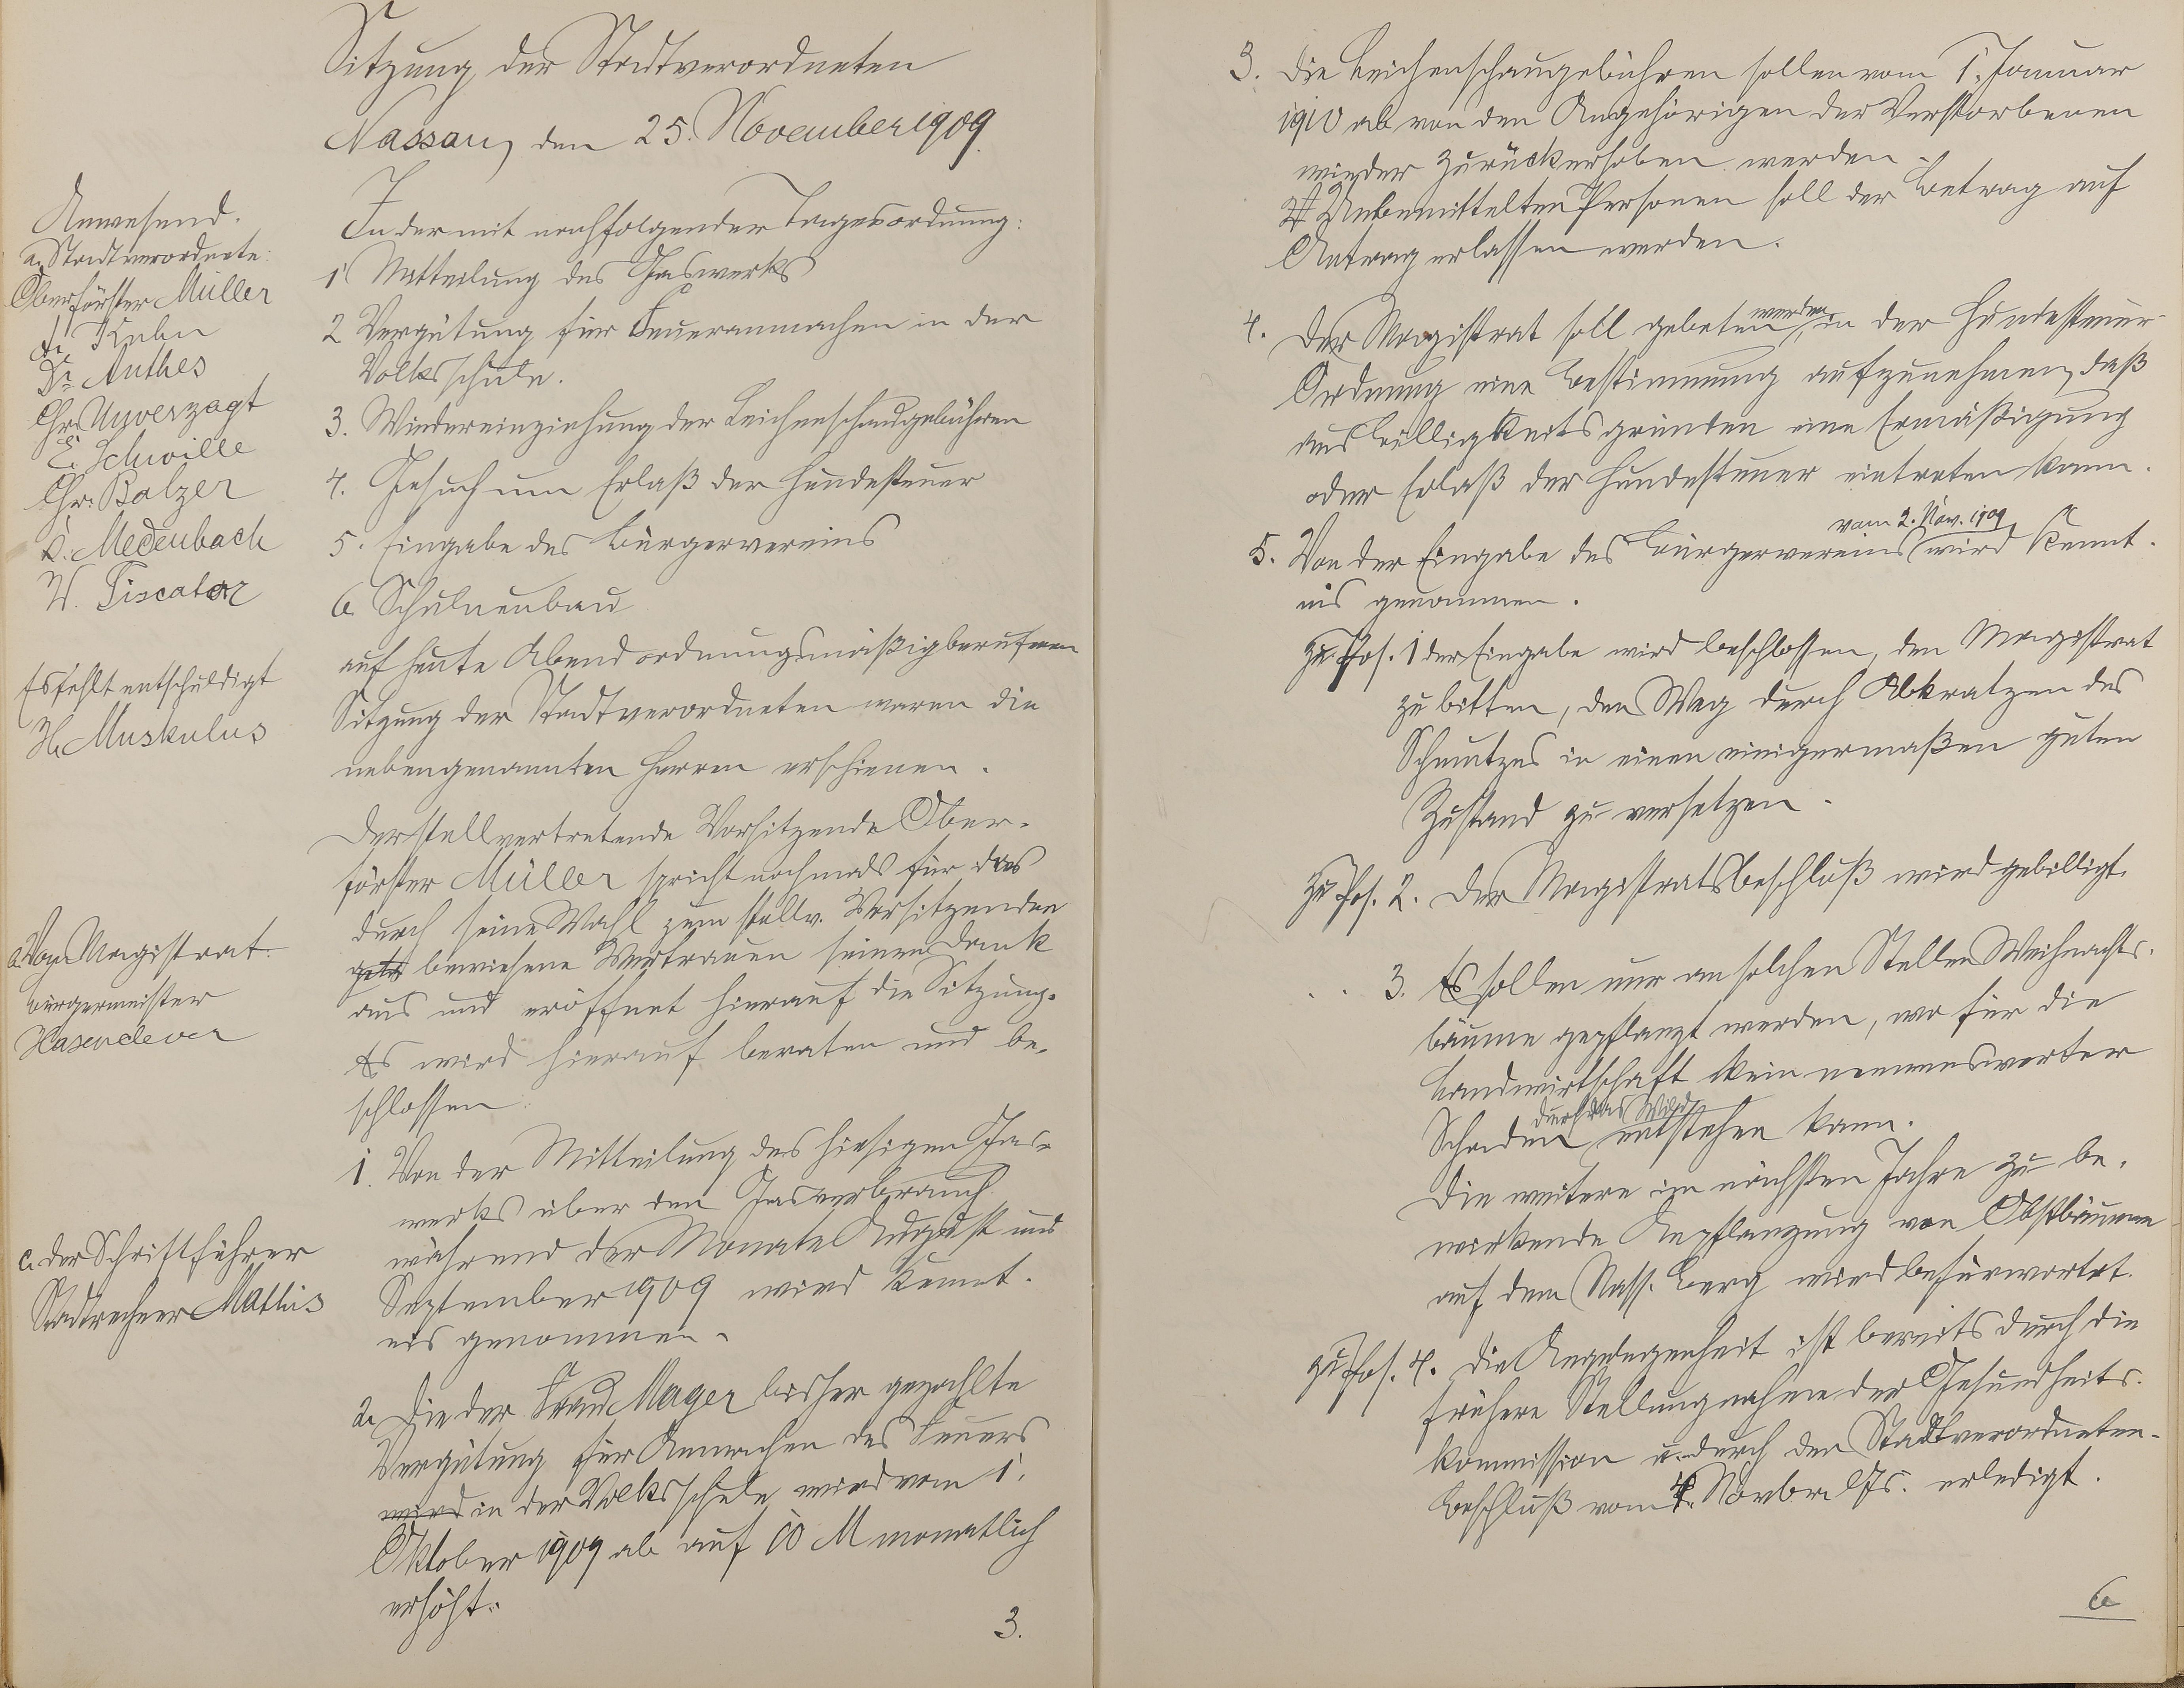 Sitzung der Stadtverordneten
Nassau, den 25. November 1909.
Anwesend.
a. Stadtverordnete:
Oberförster Müller
A. Kuhn
Dr. Anthes
Chr. Unverzagt
E. Schwille
Chr. Balzer
K. Medenbach
W. Piscator
Es fehlt entschuldigt
H. Muskulus
b. Vom Magistrat.
Bürgermeister
Hasenclever
c. der Schriftführer
Stadtrechner Mathis
In der mit nachfolgender Tagesordnung:
1 Mitteilung des Gaswerks
2 Vergütung für Feueranmachen in der
Volksschule.
3. Wiedereinziehung der Leichenschaugebühren
4. Gesuch um Erlaß der Hundesteuer
5. Eingabe des Bürgervereins
6. Schulneubau
auf heute Abend ordnungsmäßig berufenen
Sitzung der Stadtverordneten waren die
nebengenannten Herren erschienen.
Der stellvertretende Vorsitzende Ober-
förster Müller spricht nochmals für das
durch seine Wahl zum stellv. Vorsitzenden
bewiesene Vertrauen seinen Dank
aus und eröffnet hierauf die Sitzung.
Es wird hierauf beraten und be-
schlossen:
1. Von der Mitteilung des hiesigen Gas-
werks über den Gasverbrauch
während der Monate August und
September 1909 wird Kennt-
nis genommen.
2. Die der Frau Mager bisher gezahlte
Vergütung für Anmachen des Feuers
wird in der Volksschule wird vom 1.
Oktober 1909 ab auf 10 M monatlich
erhöht.
3.
3. Die Leichenschaugebühren sollen vom 1. Januar
1910 ab von den Angehörigen der Verstorbenen
wieder zurückerhoben werden.
Unbemittelten Personen soll der Betrag auf
Antrag erlassen werden.
4. Der Magistrat soll gebeten werden, in der Hundesteuer-
Ordnung eine Bestimmung aufzunehmen, daß
aus Billigkeitsgründen eine Ermäßigung
oder Erlaß der Hundesteuer eintreten kann.
5. Von der Eingabe des Bürgervereins vom 2. Nov. 1909 wird Kennt-
nis genommen.
Zu Pos. 1 der Eingabe wird beschlossen, den Magistrat
zu bitten, den Weg durch Abkratzen des
Schmutzes in einen einigermaßen guten
Zustand zu versetzen.
Zu Pos. 2. Der Magistratsbeschluß wird gebilligt.
" " 3. Es sollen nur an solchen Stellen Weihnachts-
bäume gepflanzt werden, wo für die
Landwirtschaft kein nennenswerter
Schaden durch das Wild entstehen kann.
Die weitere im nächsten Jahre zu be-
wirkende Anpflanzung von Obstbäumen
auf dem Nass. Berg wird befürwortet.
Zu Pos. 4. Die Angelegenheit ist bereits durch die
frühere Stellungnahme der Gesundheits-
kommission u. durch den Stadtverordneten-
Beschluß vom 4. Novbr. lfd. Js. erledigt.
6